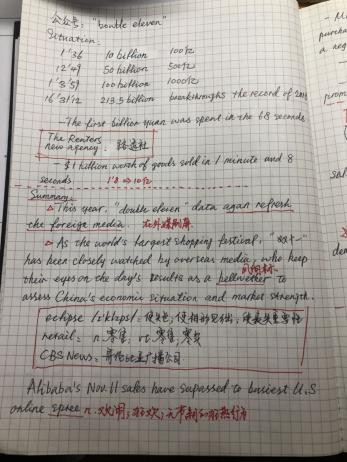 公众号: "bouble eleven"
Situation:
1'36 10 billion 100亿
12'49 50 billion 500亿
1°3'59 100 billion 1000亿
16°31'12 213.5 billion breakthroughs the record of
- The first billion yuan was spent in the 68 seconds
The Reuters
new agency: 路透社
- $1 billion worth of goods sold in 1 minute and 8
seconds 1'8 => 10亿
Summary:
This year, "double eleven" data again refresh
the foreign media. 在外媒刷屏
As the world's largest shopping festival, "双十一"
has been closely watched by overseas media, who keep
风向标
their eyes on the day's results as a bellwether to
assess China's economic situation and market strength.
eclipse /ɪ'klɪps/: 使失色; 使相形见绌;
retail: n. 零售; vt. 零售; 零卖
CBS News: 哥伦比亚广播公司
Alibaba's Nov. 11 sales have supassed to busiest U.S
online spree n. 欢闹; 狂欢;